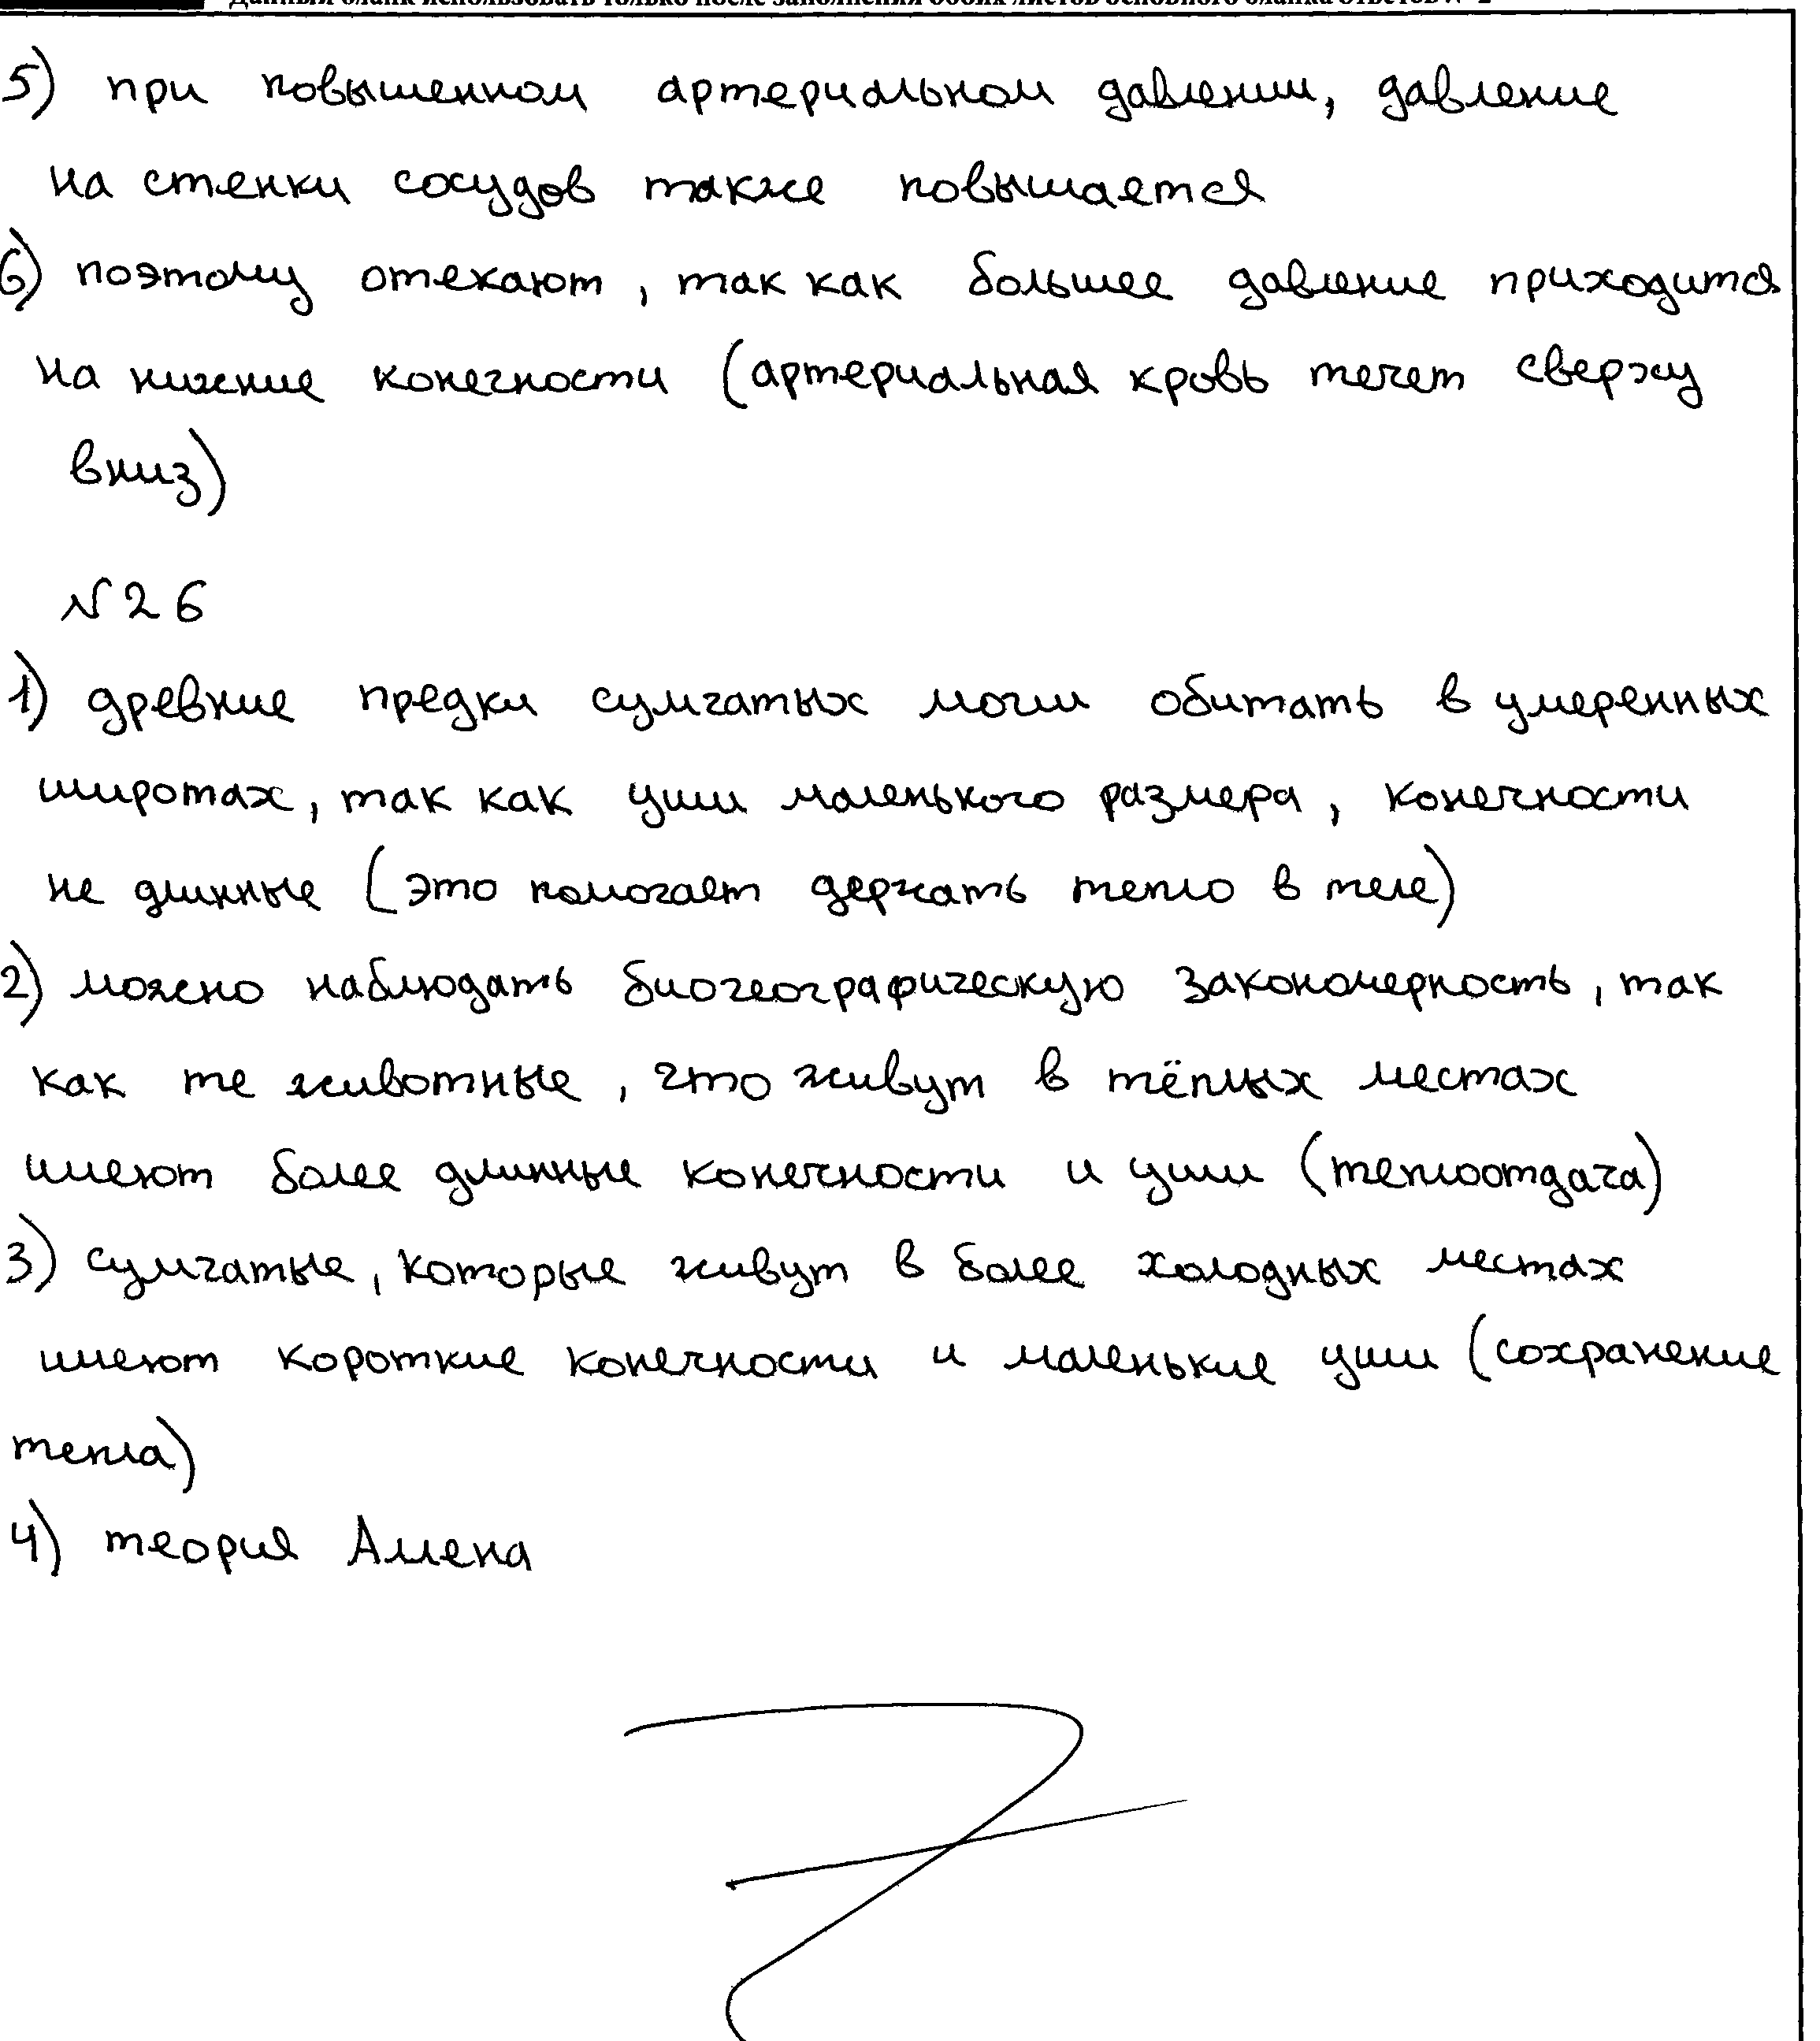 Данный бланк использовать только после заполнения обоих листов основного бланка ответов № 2
5) при повышенном артериальном давлении, давление
на стенки сосудов также повышается
6) поэтому отекают, так как большее давление приходится
на нижние конечности (артериальная кровь течет сверху
вниз)
№26
1) древние предки сумчатых могли обитать в умеренных
широтах, так как уши маленького размера, конечности
не длинные (это помогает держать тепло в теле)
2) можно наблюдать биогеографическую закономерность, так
как те животные, что живут в тёплых местах
имеют более длинные конечности и уши (теплоотдача)
3) сумчатые, которые живут в более холодных местах
имеют короткие конечности и маленькие уши (сохранение
тепла)
4) теория Аллена